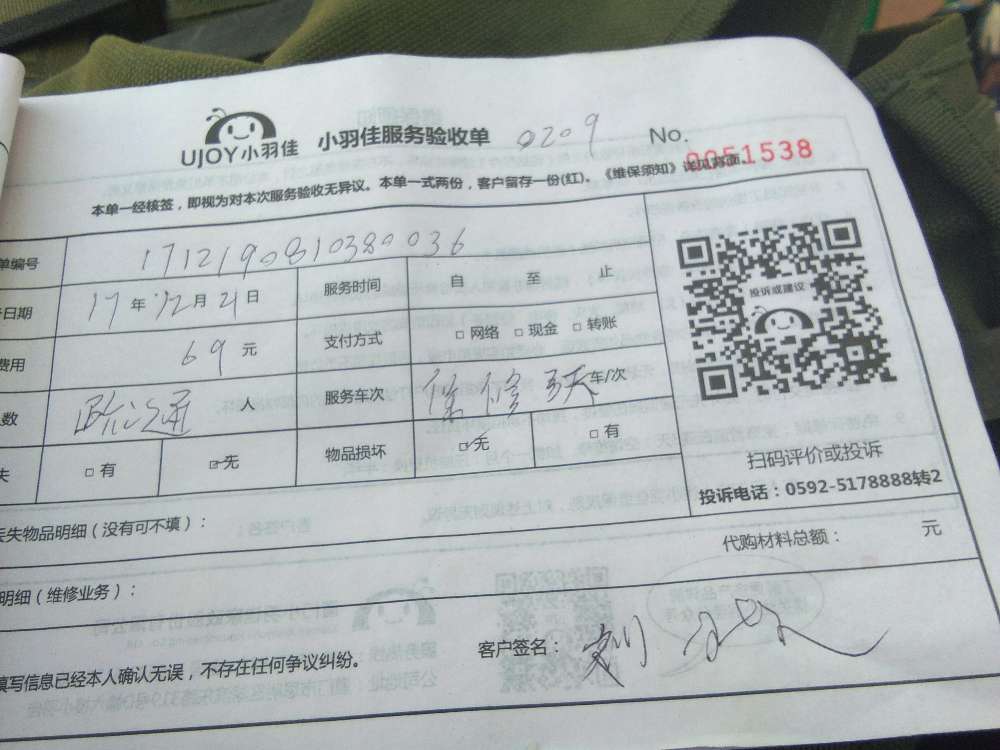 UJOY小羽佳 小羽佳服务验收单 0209 No. 0051538
本单一经核签，即视为对本次服务验收无异议。本单一式两份，客户留存一份(红)。《维保须知》详见背面。
单编号 1712190810380036
日期 17年12月21日 服务时间 自 至 止
费用 69元 支付方式 □网络 □现金 □转账
数 疏通 人 服务车次 保修 天 车/次
失 □有 □无 物品损坏 □无 □有
投诉或建议
扫码评价或投诉
投诉电话：0592-5178888转2
丢失物品明细（没有可不填）：
代购材料总额： 元
明细（维修业务）：
填写信息已经本人确认无误，不存在任何争议纠纷。
客户签名：